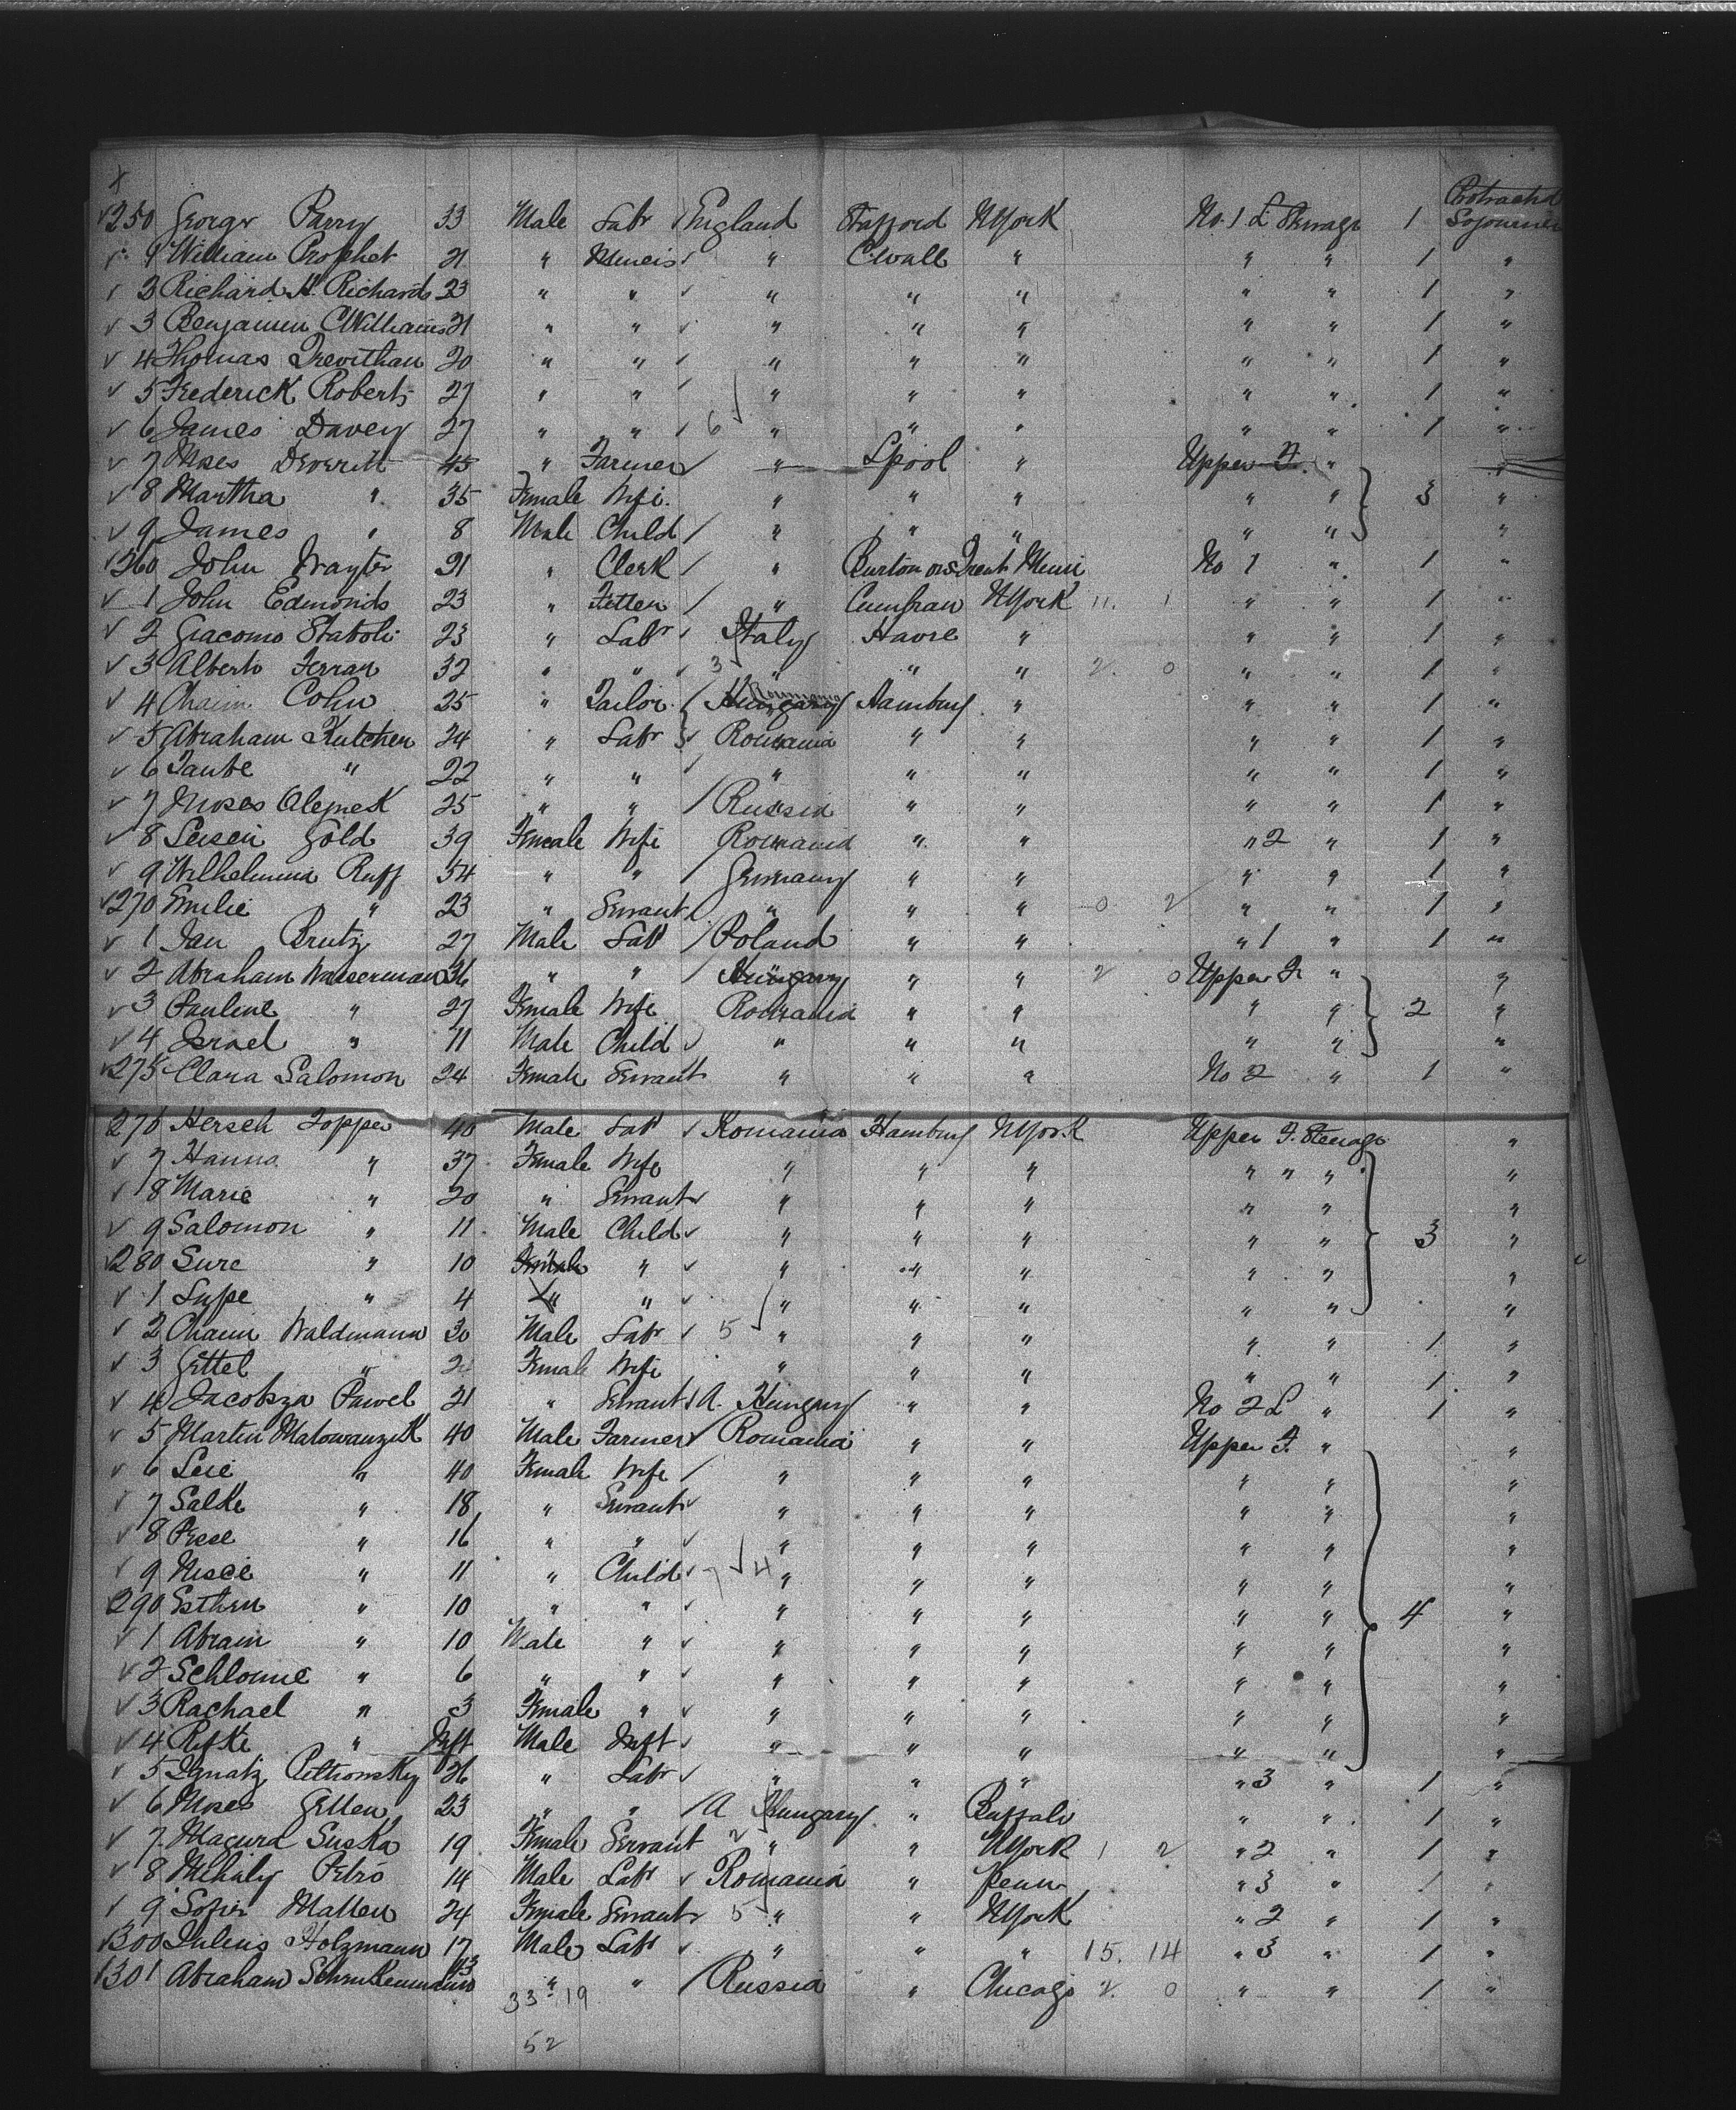 x
250 George Parry 33 Male Labr England Stafford NYork No. 1 L Steerage 1 Protracted Sojourner
1 William Prophet 21 " " C.wall " " " 1 "
2 Richard H. Richards 23 " " " " " " " 1 "
3 Benjamin C Williams 21 " " " " " " " 1 "
4 Thomas Trevithan 20 " " " " " " " 1 "
5 Frederick Roberts 27 " " " " " " " 1 "
6 James Davey 27 " " 6 " " " " " 1 "
7 Moses Deveritt 45 " Farmer " Lpool " Upper F. " "
8 Martha " 35 Female Wife " " " " " 3 "
9 James " 8 Male Child " " " " " "
260 John 21 " Clerk " Burton on Trent No 1 " 1 "
1 John Edmonds 23 " Fitter " Cwmbran NYork 11. 1 " " 1 "
2 Giacomo Staboli 23 " Labr Italy Havre " " " 1 "
3 Alberto Ferran 32 " " 3 " " " 2. 0 " " 1 "
4 Chaim Cohn 25 " Tailor Hungary Roumania Hamburg " " " 1 "
5 Abraham Kutcher 24 " Labr 3 Romania " " " " 1 "
6 Taube " 22 " " " " " " " 1 "
7 Moses 25 " " Russia " " " " 1 "
8 Gold 39 Female Wife Romania " " " 2 " 1 "
9 Wilhelmina Ruff 54 " " Germany " " " " 1 "
270 Emilie " 23 " Servant " " " 0 2 " " 1 "
1 Jan Brutz 27 Male Labr Poland " " " 1 " 1 "
2 Abraham Wasserman 36 " " Hungary " " 2 0 Upper F. " "
3 Pauline " 27 Female Wife Romania " " " " 2 "
4 Israel " 11 Male Child " " " " " "
275 Clara Salomon 24 Female Servant " " " No 2 " 1 "
276 Hersch Topper 40 Male Labr Romania Hamburg NYork Upper F. Steerage "
7 Hanna " 37 Female Wife " " " " " " "
8 Marie " 20 " Servant " " " " " "
9 Salomon " 11 Male Child " " " " " 3 "
280 Sure " 10 Female " " " " " " "
1 " 4 " " " " " " " "
2 Chaim Waldmann 30 Male Labr 5 " " " " " 1 "
3 Gittel " Female Wife " " " " " 1 "
4 Jacobza Pawel 21 " Servant A. Hungary " " No 2 L " 1 "
5 Martin Matowanzik 40 Male Farmer Romania " " Upper F. " "
6 Leie " 40 Female Wife " " " " " "
7 Salke " 18 " Servant " " " " " "
8 " 16 " " " " " " " "
9 " 11 " Child 7 4 " " " " " "
290 Esther " 10 " " " " " " " 4 "
1 Abram " 10 Male " " " " " " "
2 Schloume " 6 " " " " " " " "
3 Rachael " 3 Female " " " " " " "
4 Rifke " Inft Male Inft " " " " " "
5 Ignatz 26 " Labr " " " " 3 " 1 "
6 Moses 23 " " A Hungary " Buffalo " " 1 "
7 Macura Suska 19 Female Servant 2 " " NYork 1 2 " 2 " 1 "
8 Mihaly Petro 14 Male Labr Romania " Penn " 3 " 1 "
9 Matten 24 Female Servant 5 " " NYork " 2 " 1 "
300 Julius Holzmann 17 Male Labr " " " 15. 14 " 3 " 1 "
1301 Abraham 43 " " Russia " Chicago 2. 0 " " 1 "
33 19
52